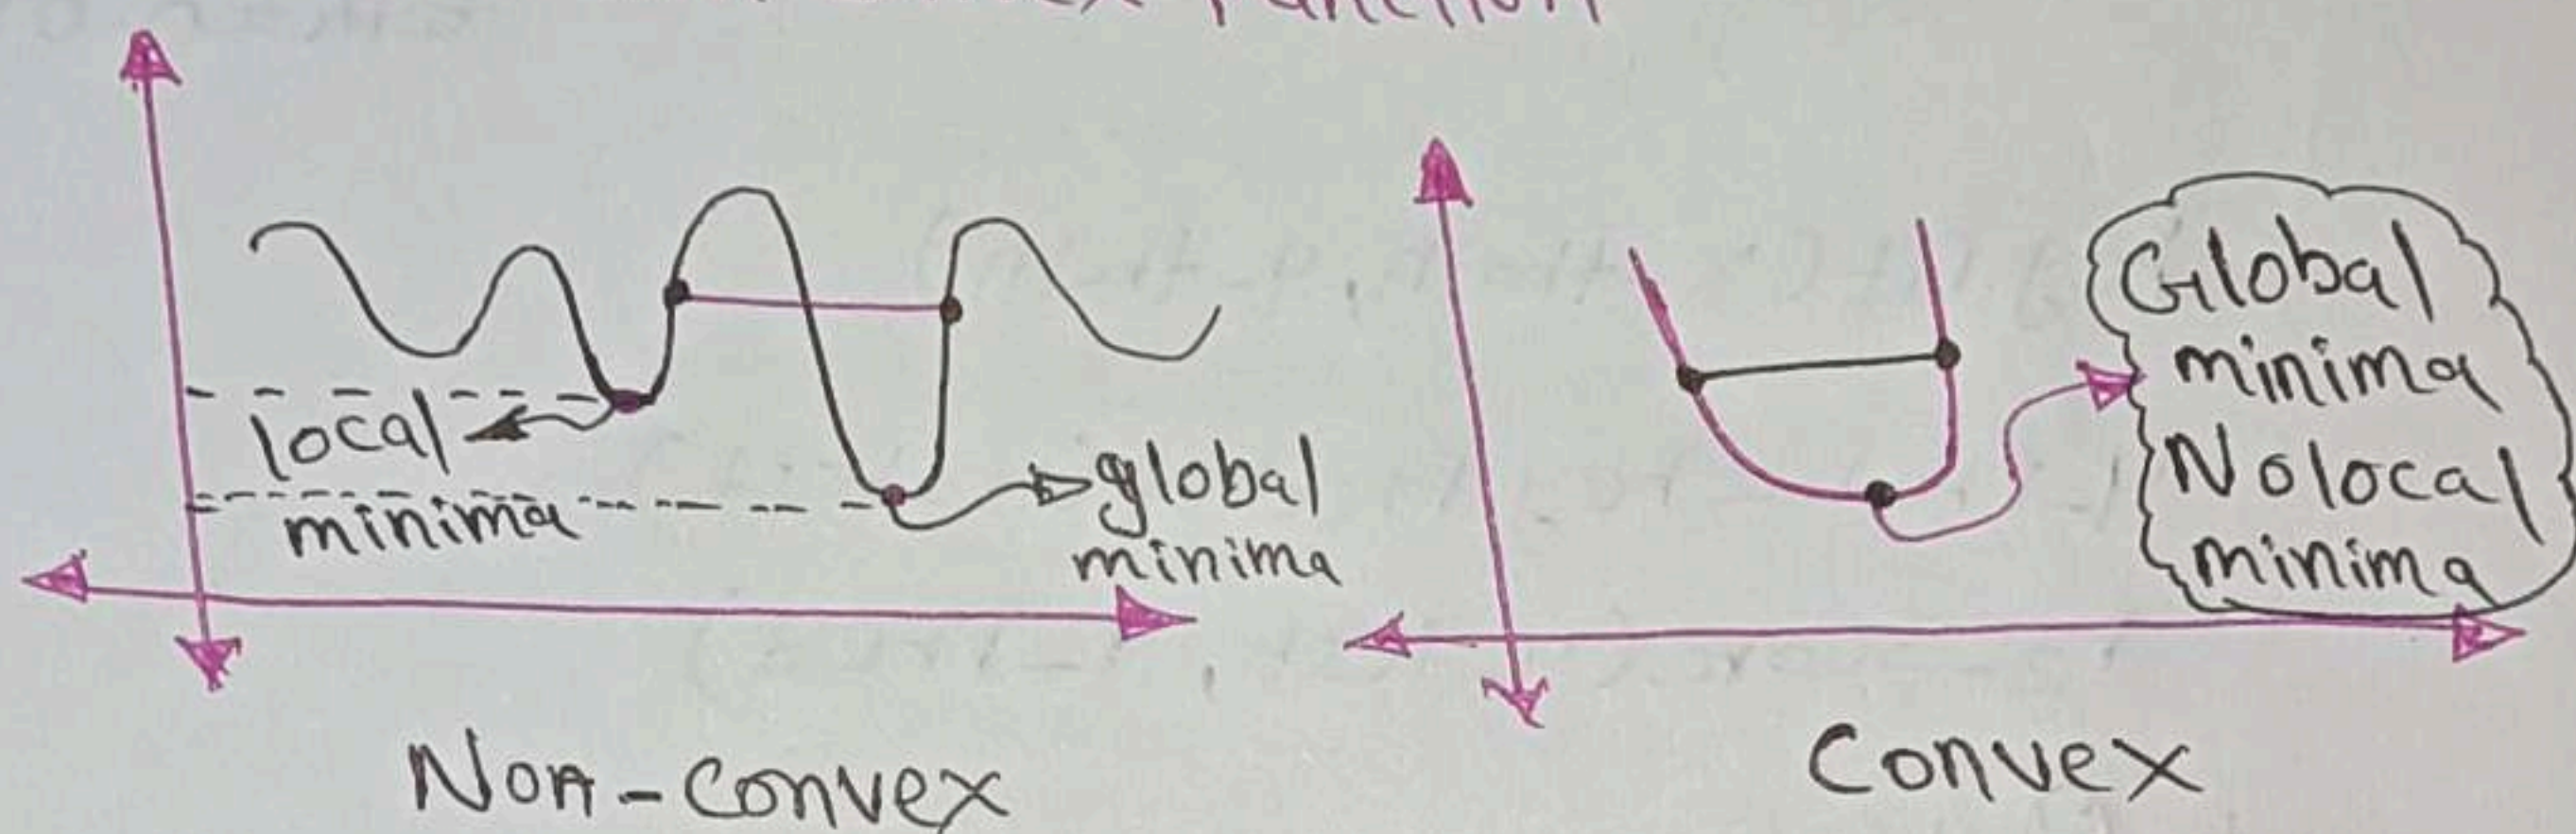 Function
local
minima
global
minima
Global
minima
No local
minima
Non-convex
Convex